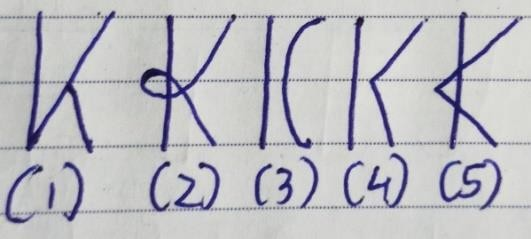 K K K K K
(1) (2) (3) (4) (5)